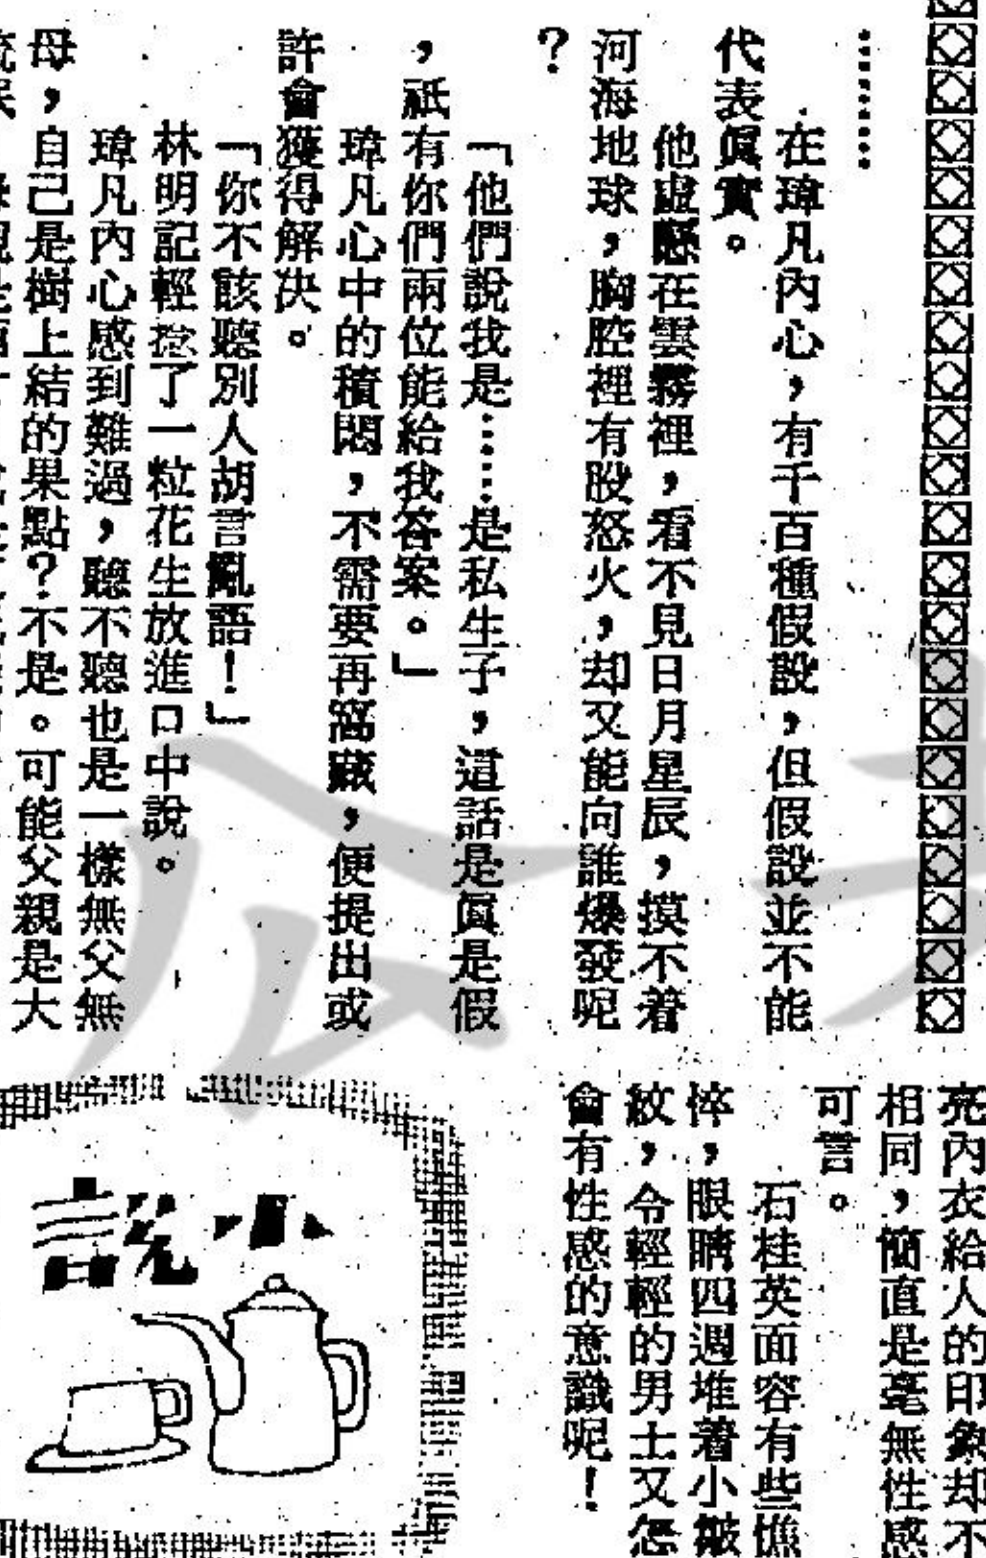 ………
在瑋凡內心，有千百種假設，但假設並不能
代表眞實。
他虛懸在雲霧裡，看不見日月星辰，摸不着
河海地球，胸腔裡有股怒火，却又能向誰爆發呢
？
「他們說我是……是私生子，這話是眞是假
，祇有你們兩位能給我答案。」
瑋凡心中的積悶，不需要再窩藏，便提出或
許會獲得解決。
「你不該聽別人胡言亂語！」
林明記輕捻了一粒花生放進口中說。
瑋凡內心感到難過，聽不聽也是一樣無父無
母，自己是樹上結的果點？不是。可能父親是大
亮內衣給人的印象却不
相同，簡直是毫無性感
可言。
石桂英面容有些憔
悴，眼睛四週堆着小皺
紋，令輕輕的男士又怎
會有性感的意識呢！
小說
公